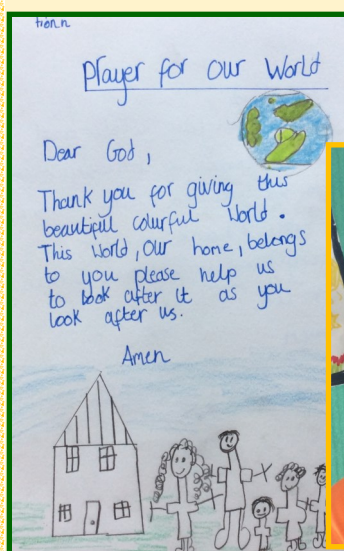 Prayer for our World
Dear God,
Thank you for giving this
beautiful colurful World.
This World, Our home, belongs
to you please help us
to look after it as you
look after us.
Amen